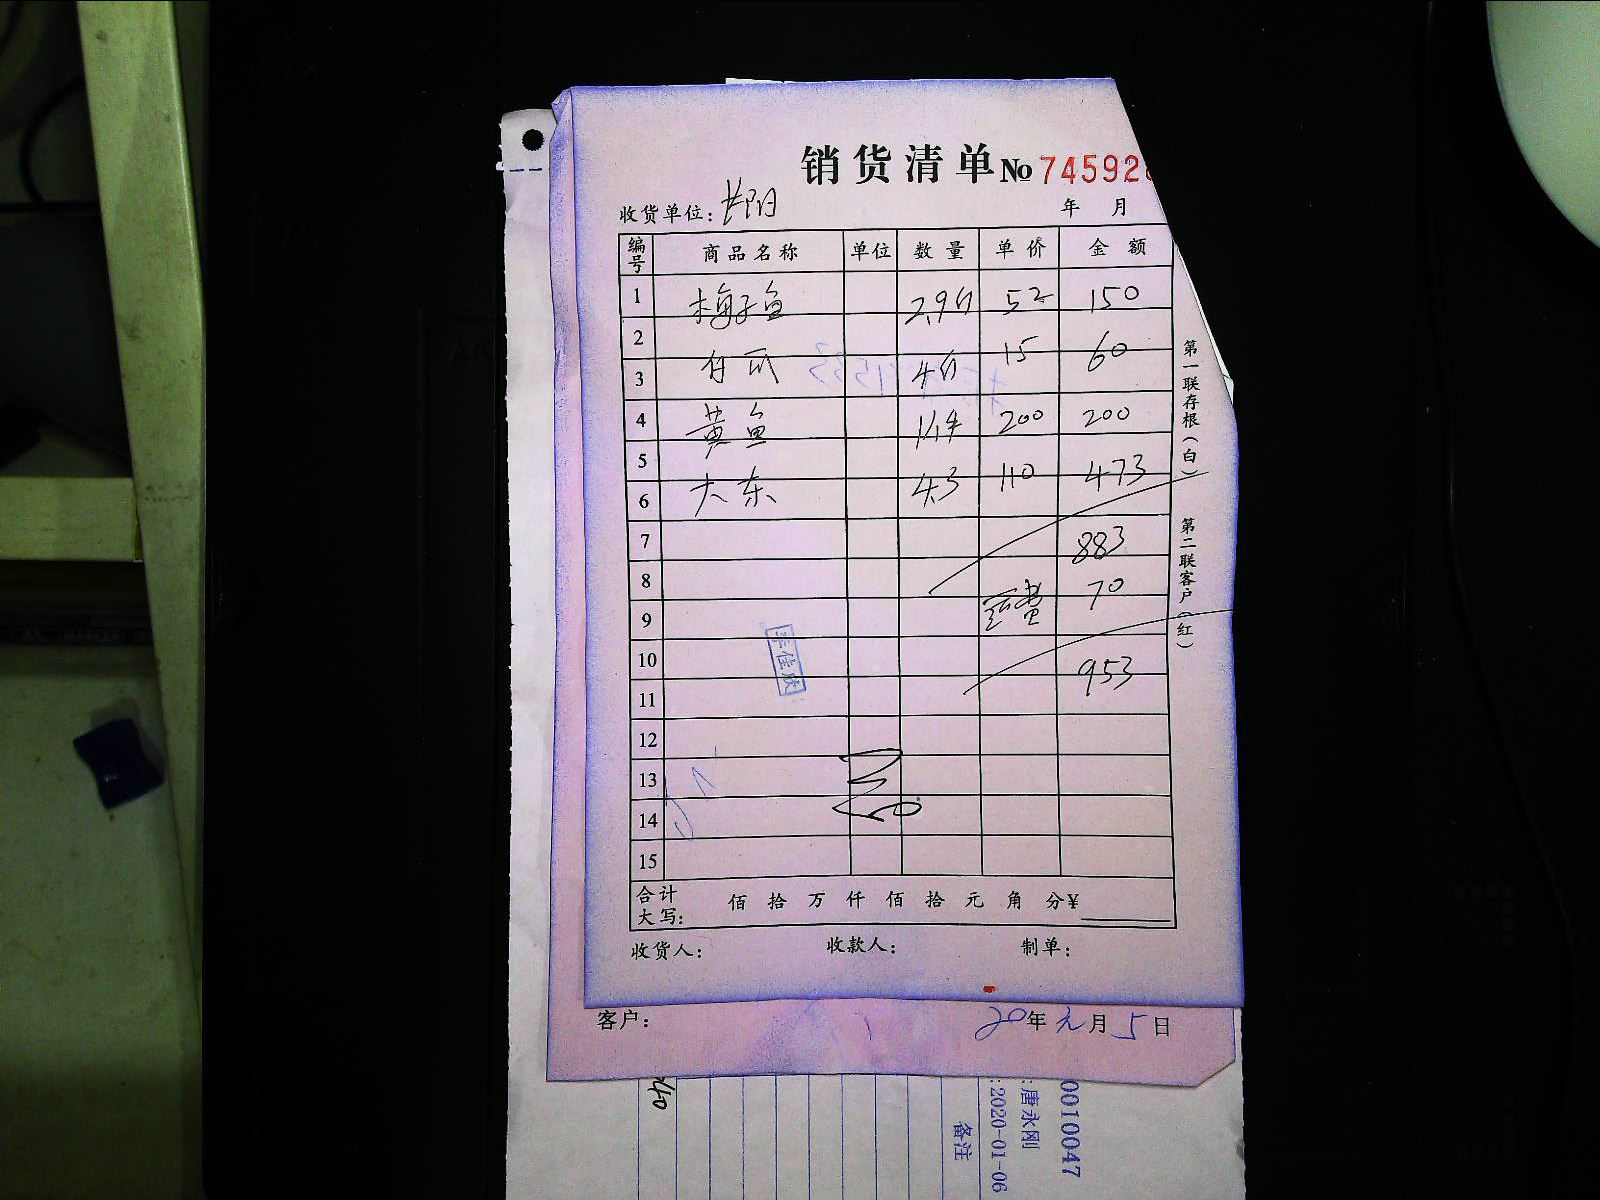 销货清单 № 745928
收货单位：
年 月
编号 商品名称 单位 数量 单价 金额
1 梅子鱼 2.9斤 52 150
2 15 60
3 4斤
4 黄鱼 1.1斤 200 200
5 110 473
6 大东 4.3
7 883
8 70
9 运费
10 953
11
12
13
14
15
李佳欣
合计大写： 佰 拾 万 仟 佰 拾 元 角 分 ¥
收货人： 收款人： 制单：
第一联存根（白） 第二联客户（红）
客户： 20年元月5日
0010047
:唐永刚
:2020-01-06
备注